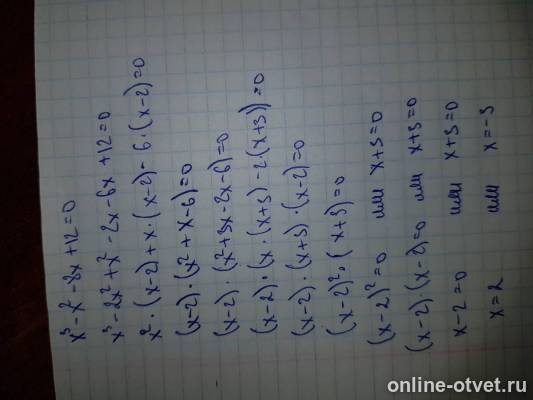 x³-x²-8x+12=0
x³-2x²+x²-2x-6x+12=0
x²·(x-2)+x·(x-2)-6·(x-2)=0
(x-2)·(x²+x-6)=0
(x-2)·(x²+3x-2x-6)=0
(x-2)·(x·(x+3)-2·(x+3))=0
(x-2)·(x+3)·(x-2)=0
(x-2)²·(x+3)=0
(x-2)²=0 или x+3=0
(x-2)·(x-2)=0 или x+3=0
x-2=0 или x+3=0
x=2 или x=-3
online-otvet.ru